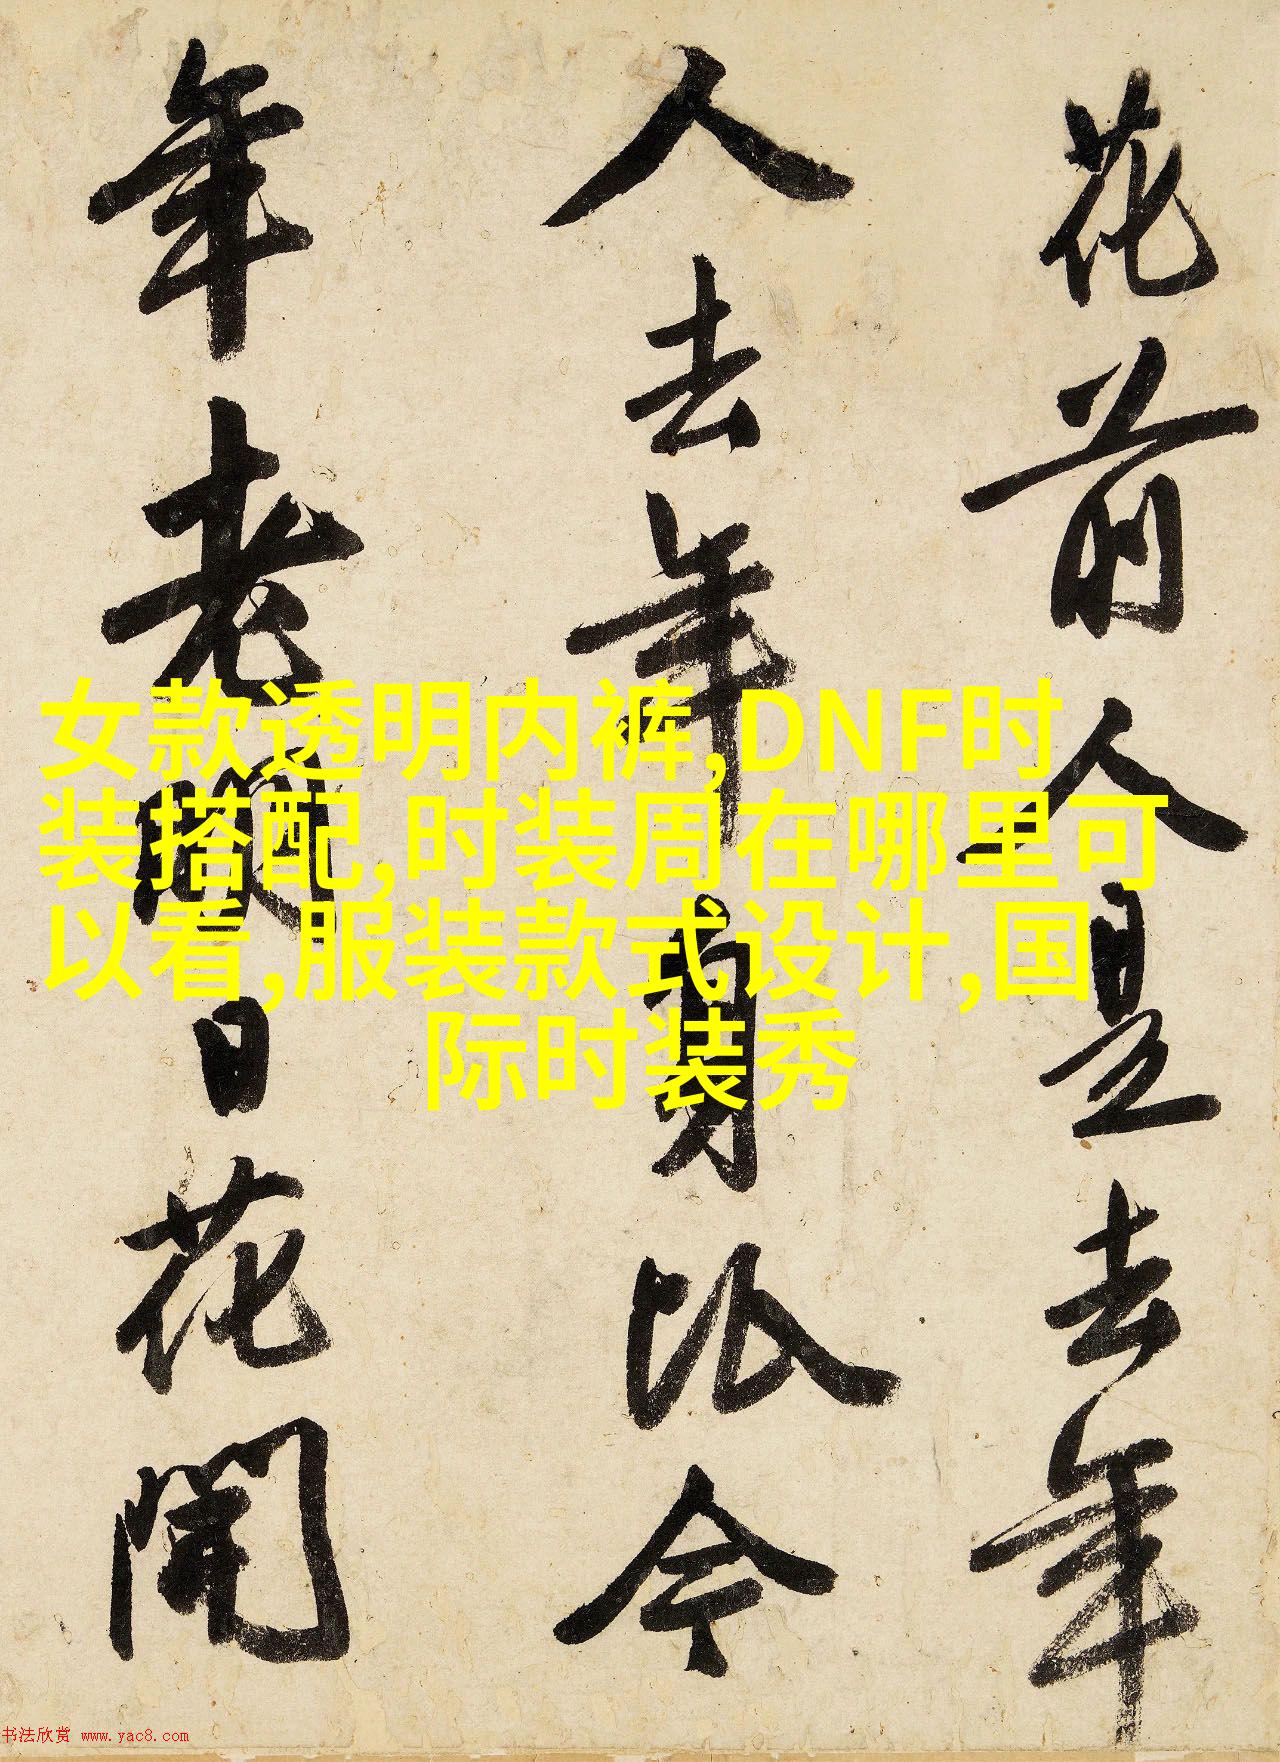 花前人是去年
人去年身比今
年老明日花開
女款透明内裤,DNF时
装搭配,时装周在哪里可
以看,服装款式设计,国
际时装秀
书法欣赏 www.yac8.com